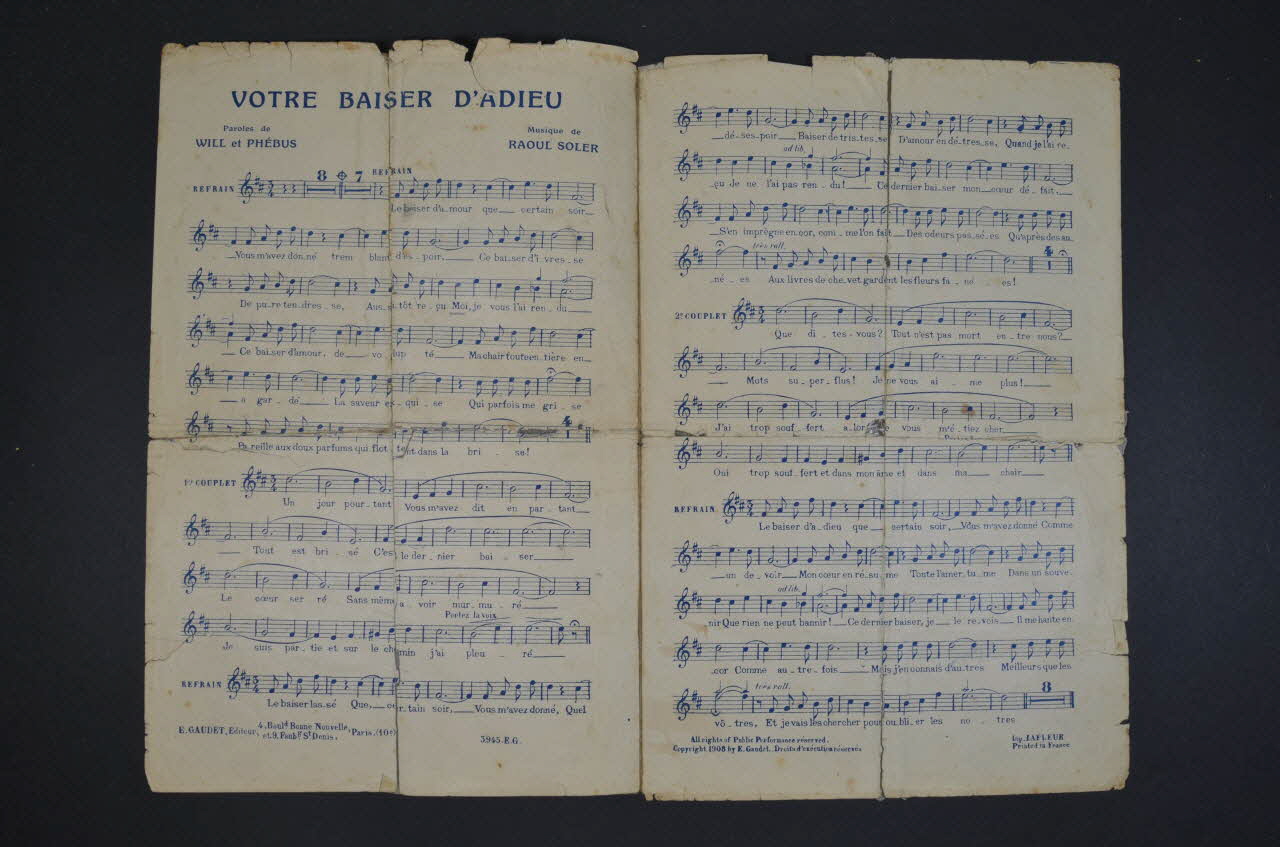 VOTRE BAISER D'ADIEU
Paroles de
WILL et PHÉBUS
Musique de
RAOUL SOLER
8 7 REFRAIN
REFRAIN
Le baiser d'a_mour que__ certain soir__
__Vous m'avez don_né trem blant d'es_poir,__ Ce bai_ser d'i_vres_se
De pu_re ten_dres_se, Aus_si_tôt re_çu Moi, je vous l'ai ren_du__
__ Ce bai_ser d'amour, de__ vo lup té__ Ma chair toute en_tière en__
__a gar_dé__ La saveur ex_qui_se Qui parfois me gri_se
Pa_reille aux doux parfums qui flot_tent dans la bri_se!
4
1er COUPLET
Un jour pour_tant Vous m'avez dit en par_tant__
__ Tout est bri_sé C'est le der_nier bai_ser__
Le cœur ser ré Sans même a_voir mur_mu_ré__
Portez la voix
Je suis par_tie et sur le chemin j'ai pleu_ré__
REFRAIN
Le baiser las_sé Que, cer_tain soir,__ Vous m'avez donné, Quel
E. GAUDET, Editeur, 4, Boul.d Bonne Nouvelle, et 9, Faub.g St Denis. Paris. (10e)
3945. E.G.
__dé_ses_poir__ Baiser de tris_tes_se D'amour en dé_tres_se, Quand je l'ai re_
ad lib.
_çu Je ne l'ai pas ren_du!__ Ce dernier bai_ser mon__cœur dé_fait__
__S'en imprègne encor, com_me l'on fait__ Des odeurs pas_sé_es Qu'après des an_
très rall.
4
_né_es Aux livres de che_vet gardent les fleurs fa_né_es!
2e COUPLET
Que di_tes-vous? Tout n'est pas mort en_tre nous?
__ Mots su_per_flus! Je ne vous ai_me plus!__
J'ai trop souf_fert alors que vous m'é_tiez cher__
Oui trop souf_fert et dans mon âme et dans ma__ chair__
REFRAIN
Le baiser d'a_dieu que__ certain soir, __Vous m'avez donné Comme
__un de_voir__ Mon cœur en ré_su_me Toute l'amer_tu_me Dans un souve_
ad lib.
nir Que rien ne peut bannir!__ Ce dernier baiser, je__ le re_vois__ Il me hante en_
_cor Comme au_tre_fois__ Mais j'en connais d'au_tres Meilleurs que les
très rall.
8
vô_tres, Et je vais les chercher pour ou_bli_er les nô_tres
All rights of Public Performance reserved.
Copyright 1908 by E. Gaudet. Droits d'exécution réservés
Imp. LAFLEUR
Printed in France